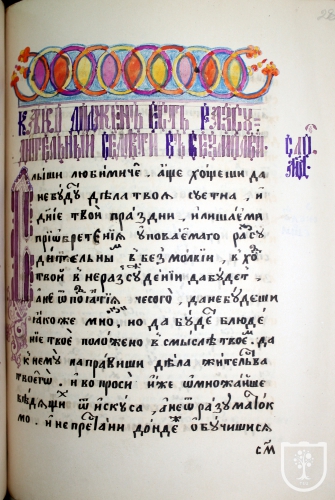 како должен есть разсу=
дительный седети в безмолвии.
слово
лыши любимиче. аще хощеши да
не будут дела твоя суетна, и
дніе твои праздни, и лишаеми
пріѡбретенія уповаемаго разсу
дителны м в безмолвіи, вхо
твой в неразсуждении да будет.
а не ѿ понятія чесого, да не будеши
такоже мню, но да будет блюде
ніе твое положено в смысле твоем. да
к нему направиши дела жительва
твоего. и вопроси иже ѿ множайше
ведящи ѿ искуса, а не ѿ разума ток
мо. и не престани дондеже обучишися
см